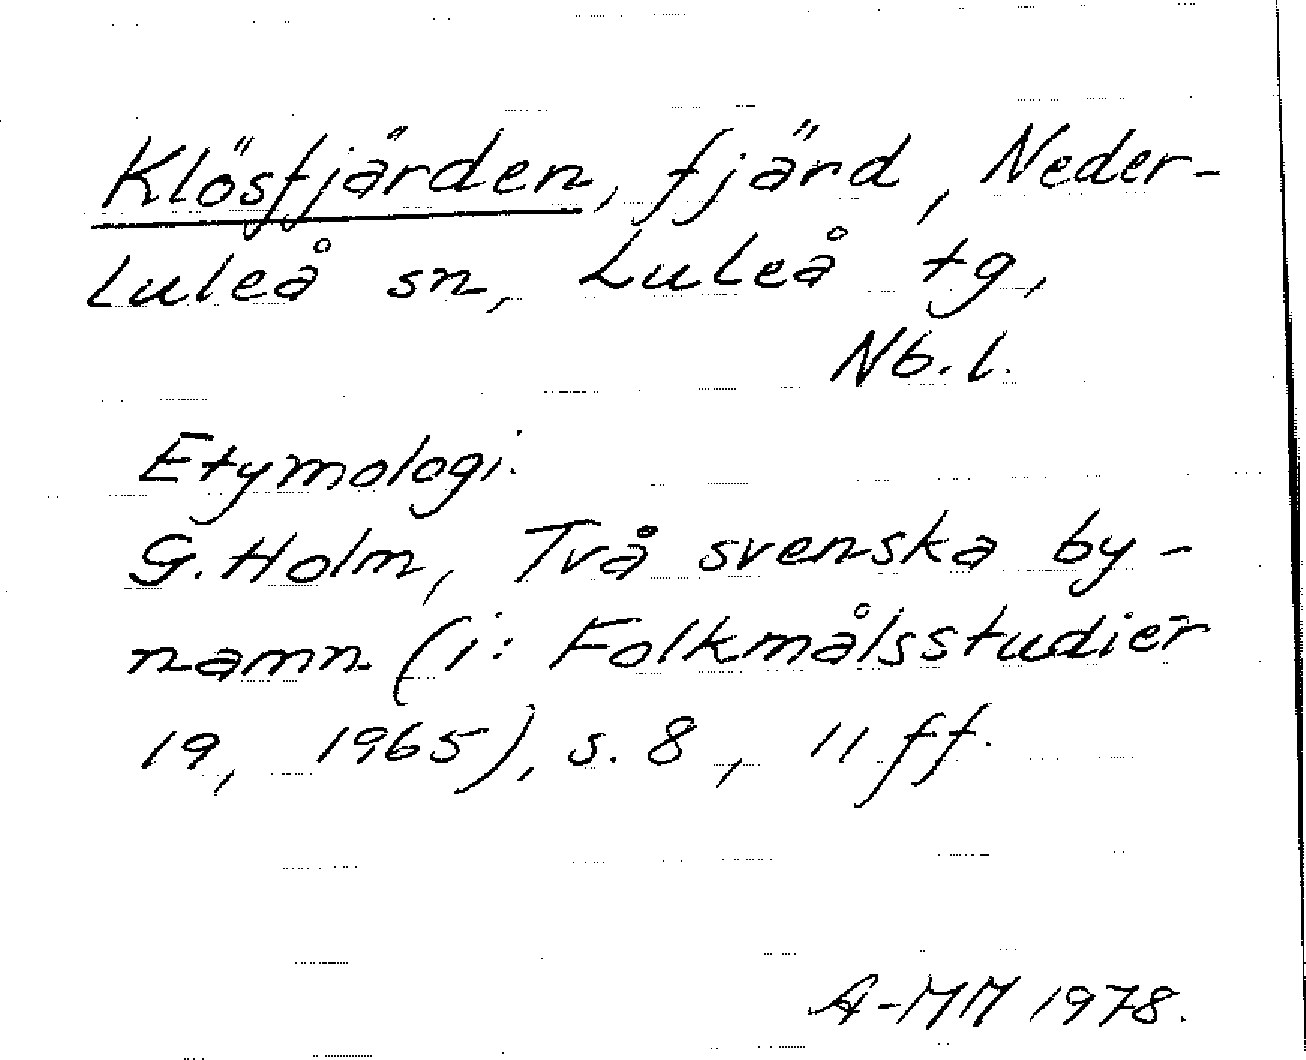 Klösfjärden, fjärd, Neder-
Luleå sn, Luleå tg,
Nb.l.
Etymologi.
G. Holm, Två svenska by-
namn (i: Folkmålsstudier
19, 1965), s. 8, 11 ff.
A-MM 1978.